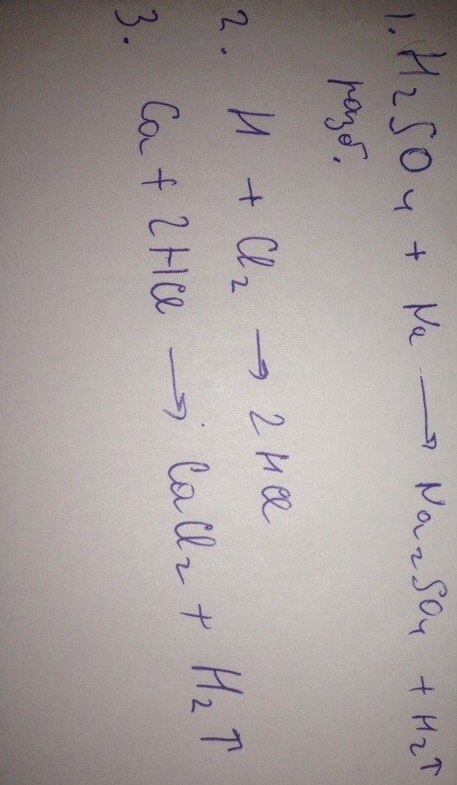 1. H₂SO₄ + Na → Na₂SO₄ + H₂↑
разб.
2. H + Cl₂ → 2HCl
3. Ca + 2HCl → CaCl₂ + H₂↑